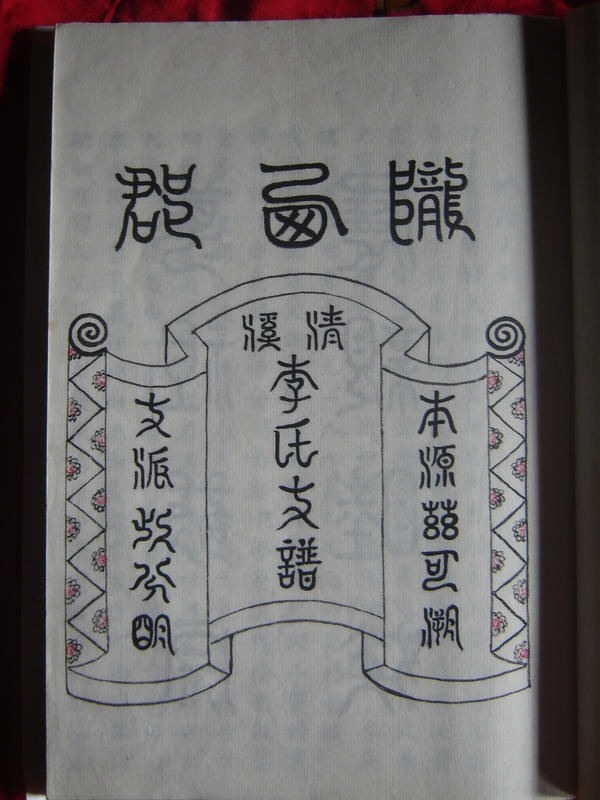 隴西郡
清溪
李氏支譜
本源茲可溯
支派此分明